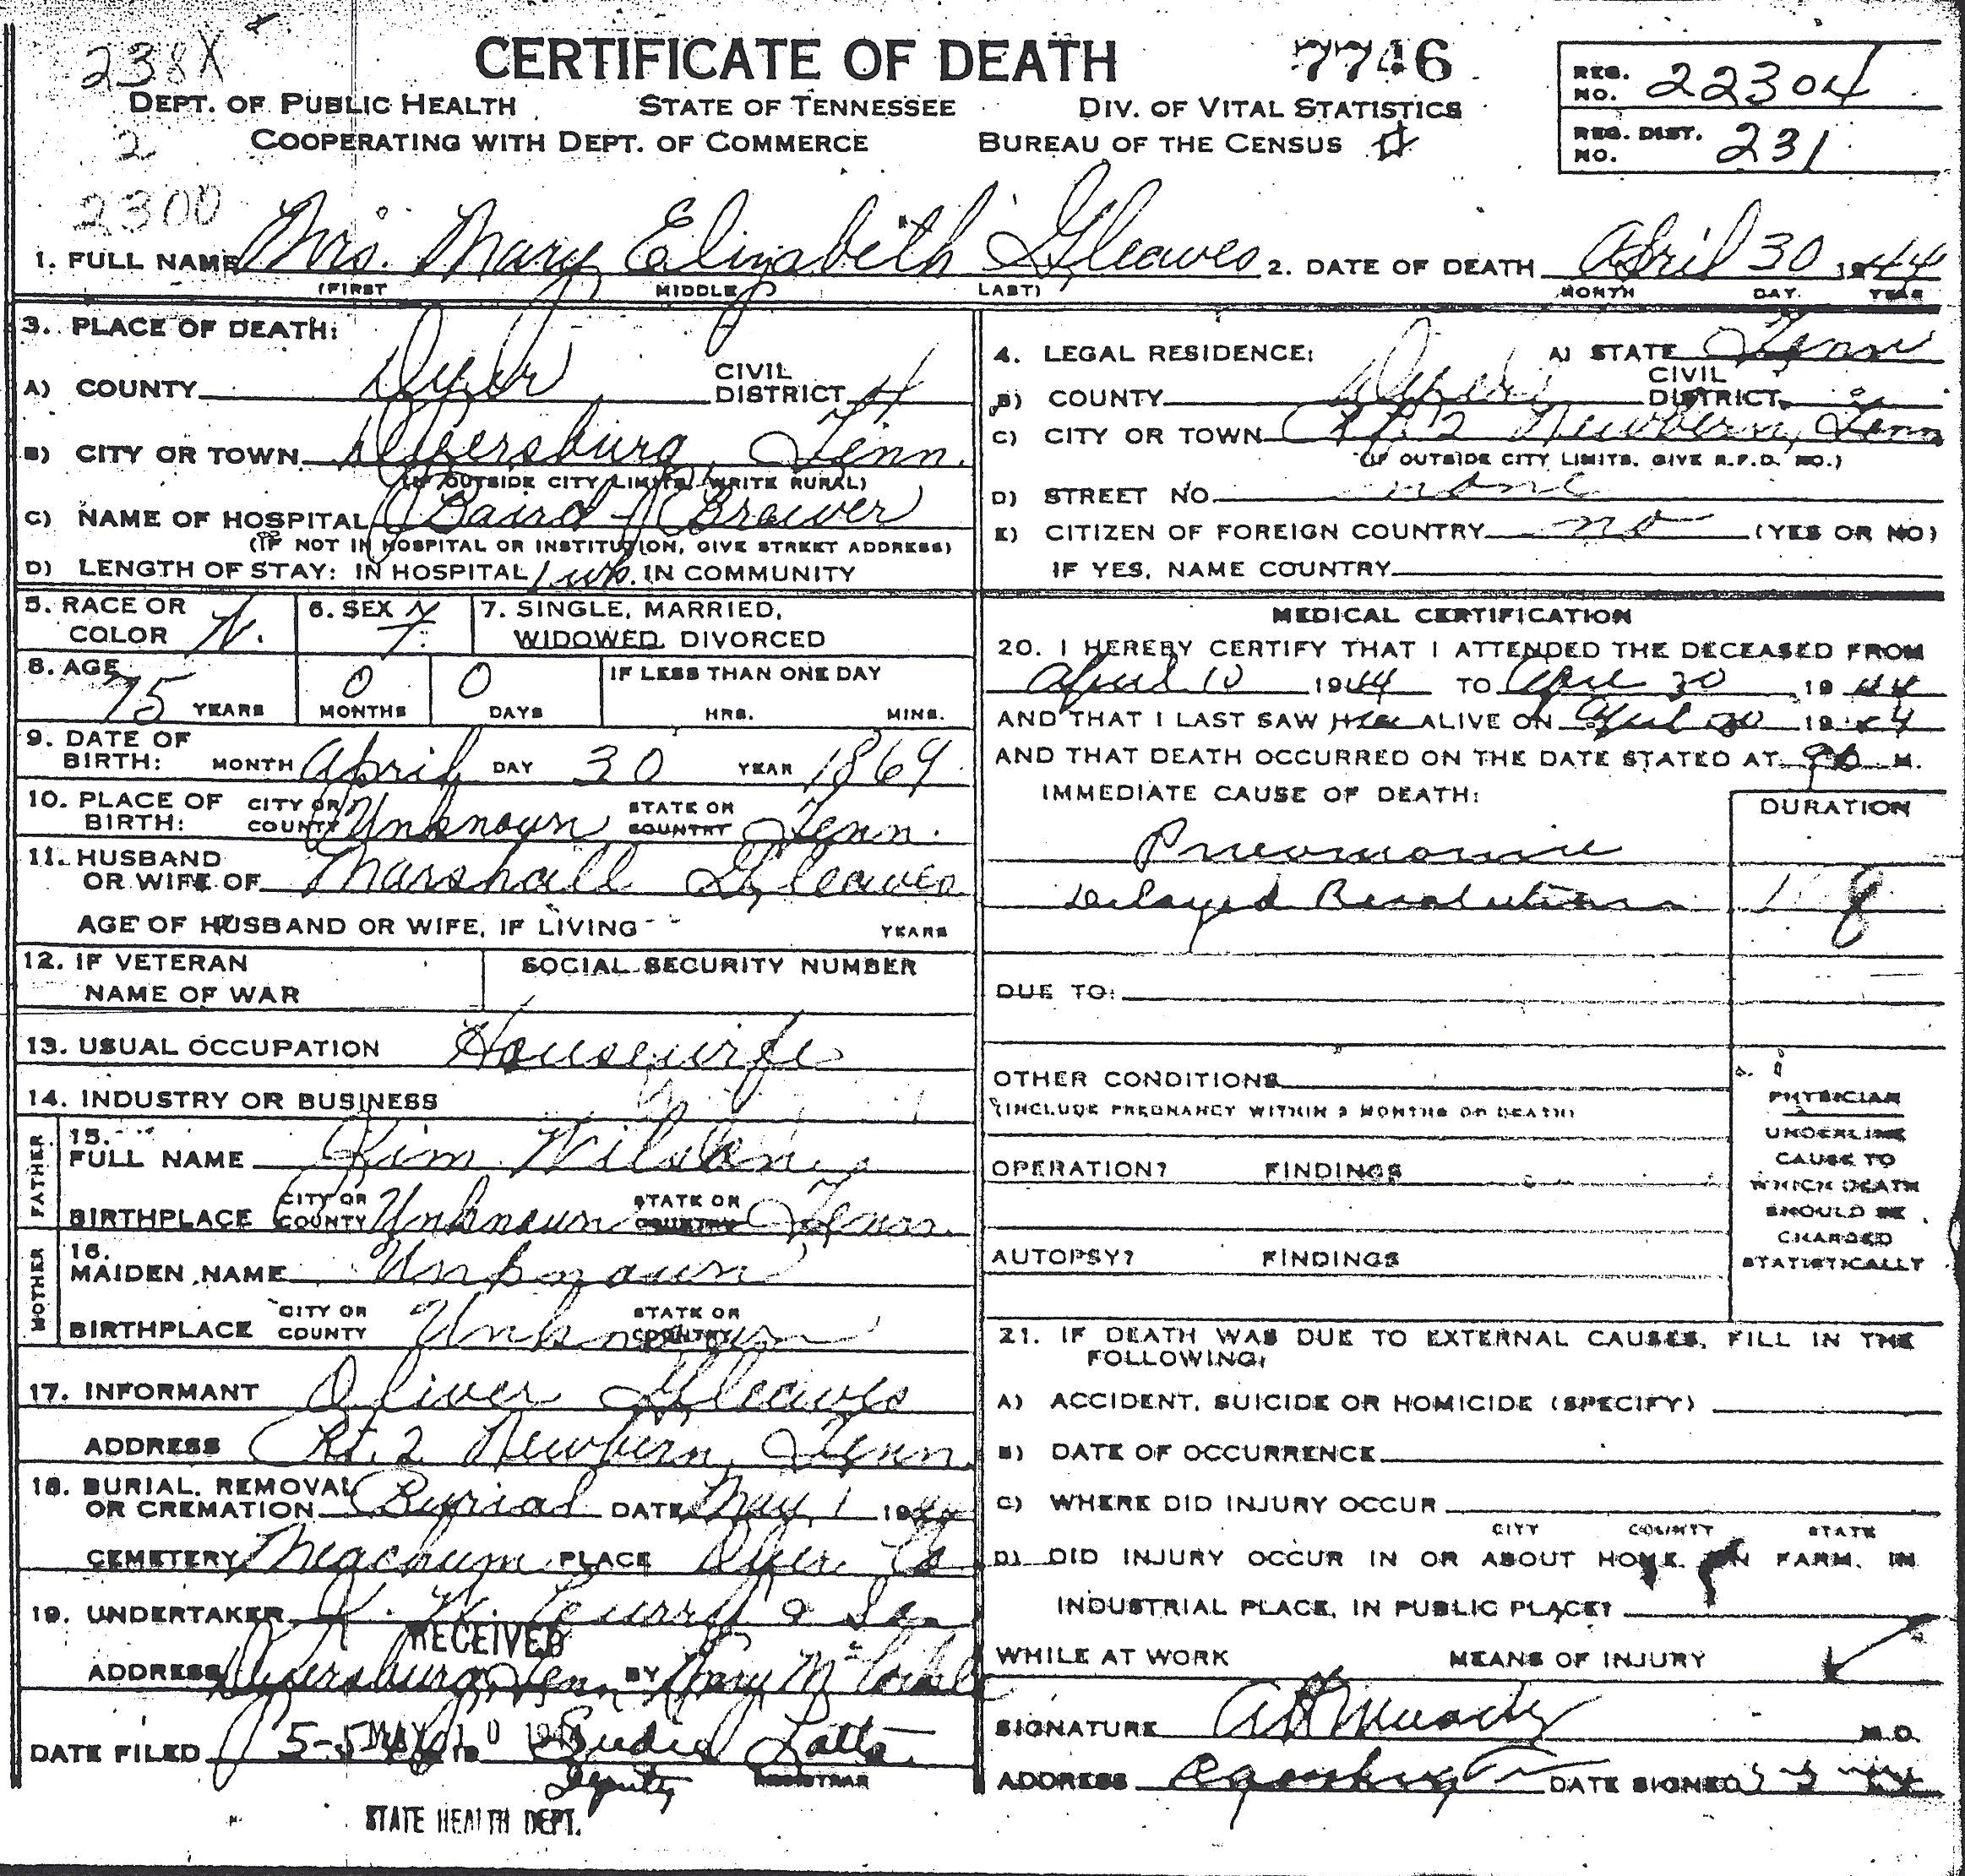 238X
CERTIFICATE OF DEATH 7746
REG. NO. 22304
DEPT. OF PUBLIC HEALTH STATE OF TENNESSEE DIV. OF VITAL STATISTICS
2 COOPERATING WITH DEPT. OF COMMERCE BUREAU OF THE CENSUS
REG. DIST. NO. 231
2300
1. FULL NAME Mrs. Mary Elizabeth Gleaves 2. DATE OF DEATH April 30 1944
(FIRST MIDDLE LAST) MONTH DAY YEAR
3. PLACE OF DEATH:
A) COUNTY Dyer CIVIL DISTRICT 4
B) CITY OR TOWN Dyersburg, Tenn.
(IF OUTSIDE CITY LIMITS, WRITE RURAL)
C) NAME OF HOSPITAL Baird Brewer
(IF NOT IN HOSPITAL OR INSTITUTION, GIVE STREET ADDRESS)
D) LENGTH OF STAY: IN HOSPITAL 1 wk. IN COMMUNITY
4. LEGAL RESIDENCE: A) STATE Tenn
B) COUNTY Dyer CIVIL DISTRICT
C) CITY OR TOWN Rt. 2 Newbern, Tenn
(IF OUTSIDE CITY LIMITS, GIVE R.F.D. NO.)
D) STREET NO. none
E) CITIZEN OF FOREIGN COUNTRY no (YES OR NO)
IF YES, NAME COUNTRY
5. RACE OR COLOR W. 6. SEX F. 7. SINGLE, MARRIED,
WIDOWED, DIVORCED
8. AGE 75 YEARS 0 MONTHS 0 DAYS IF LESS THAN ONE DAY
HRS. MINS.
9. DATE OF BIRTH: MONTH April DAY 30 YEAR 1869
10. PLACE OF BIRTH: CITY OR COUNTY Unknown STATE OR COUNTRY Tenn.
11. HUSBAND OR WIFE OF Marshall Gleaves
AGE OF HUSBAND OR WIFE, IF LIVING YEARS
12. IF VETERAN NAME OF WAR SOCIAL SECURITY NUMBER
13. USUAL OCCUPATION Housewife
14. INDUSTRY OR BUSINESS
FATHER
15. FULL NAME Kim
BIRTHPLACE CITY OR COUNTY Unknown STATE OR COUNTRY Tenn.
MOTHER
16. MAIDEN NAME Unknown
BIRTHPLACE CITY OR COUNTY Unknown STATE OR COUNTRY
17. INFORMANT Oliver Gleaves
ADDRESS Rt. 2 Newbern, Tenn.
18. BURIAL, REMOVAL OR CREMATION Burial DATE May 1 1944
CEMETERY Meachum PLACE Dyer Co
19. UNDERTAKER Curry & Son
RECEIVED
ADDRESS Dyersburg, Tenn BY Mary
DATE FILED 5-5 MAY 10 19 Sudie Latta
Deputy REGISTRAR
STATE HEALTH DEPT.
MEDICAL CERTIFICATION
20. I HEREBY CERTIFY THAT I ATTENDED THE DECEASED FROM
April 10 1944 TO Apr 30 1944
AND THAT I LAST SAW Her ALIVE ON April 30 1944
AND THAT DEATH OCCURRED ON THE DATE STATED AT M.
IMMEDIATE CAUSE OF DEATH: DURATION
Pneumonia
Delayed Resolution
DUE TO:
OTHER CONDITIONS
(INCLUDE PREGNANCY WITHIN 3 MONTHS OF DEATH)
OPERATION? FINDINGS
AUTOPSY? FINDINGS
PHYSICIAN
UNDERLINE
CAUSE TO
WHICH DEATH
SHOULD BE
CHARGED
STATISTICALLY
21. IF DEATH WAS DUE TO EXTERNAL CAUSES, FILL IN THE
FOLLOWING:
A) ACCIDENT, SUICIDE OR HOMICIDE (SPECIFY)
B) DATE OF OCCURRENCE
C) WHERE DID INJURY OCCUR
CITY COUNTY STATE
D) DID INJURY OCCUR IN OR ABOUT HOME, ON FARM, IN
INDUSTRIAL PLACE, IN PUBLIC PLACE?
WHILE AT WORK MEANS OF INJURY
SIGNATURE M.D.
ADDRESS DATE SIGNED